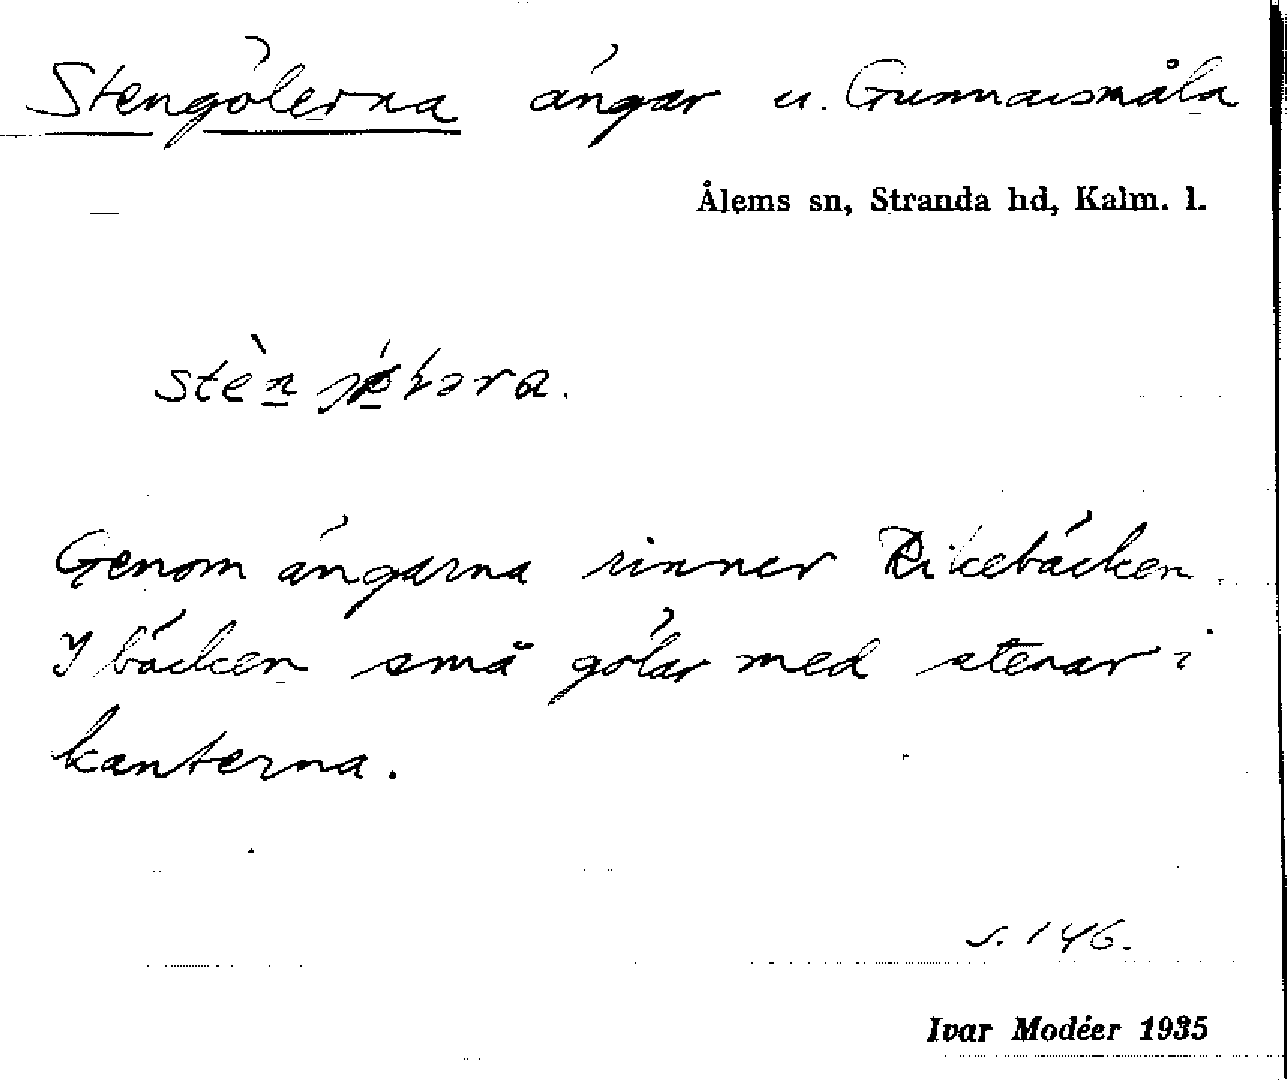 Stengölerna ängar u. Gunnarsmåla
Ålems sn, Stranda hd, Kalm. l.
Genom ängarna rinner Rikebäcken.
I bäcken små gölar med stenar i
kanterna.
s. 146.
Ivar Modéer 1935